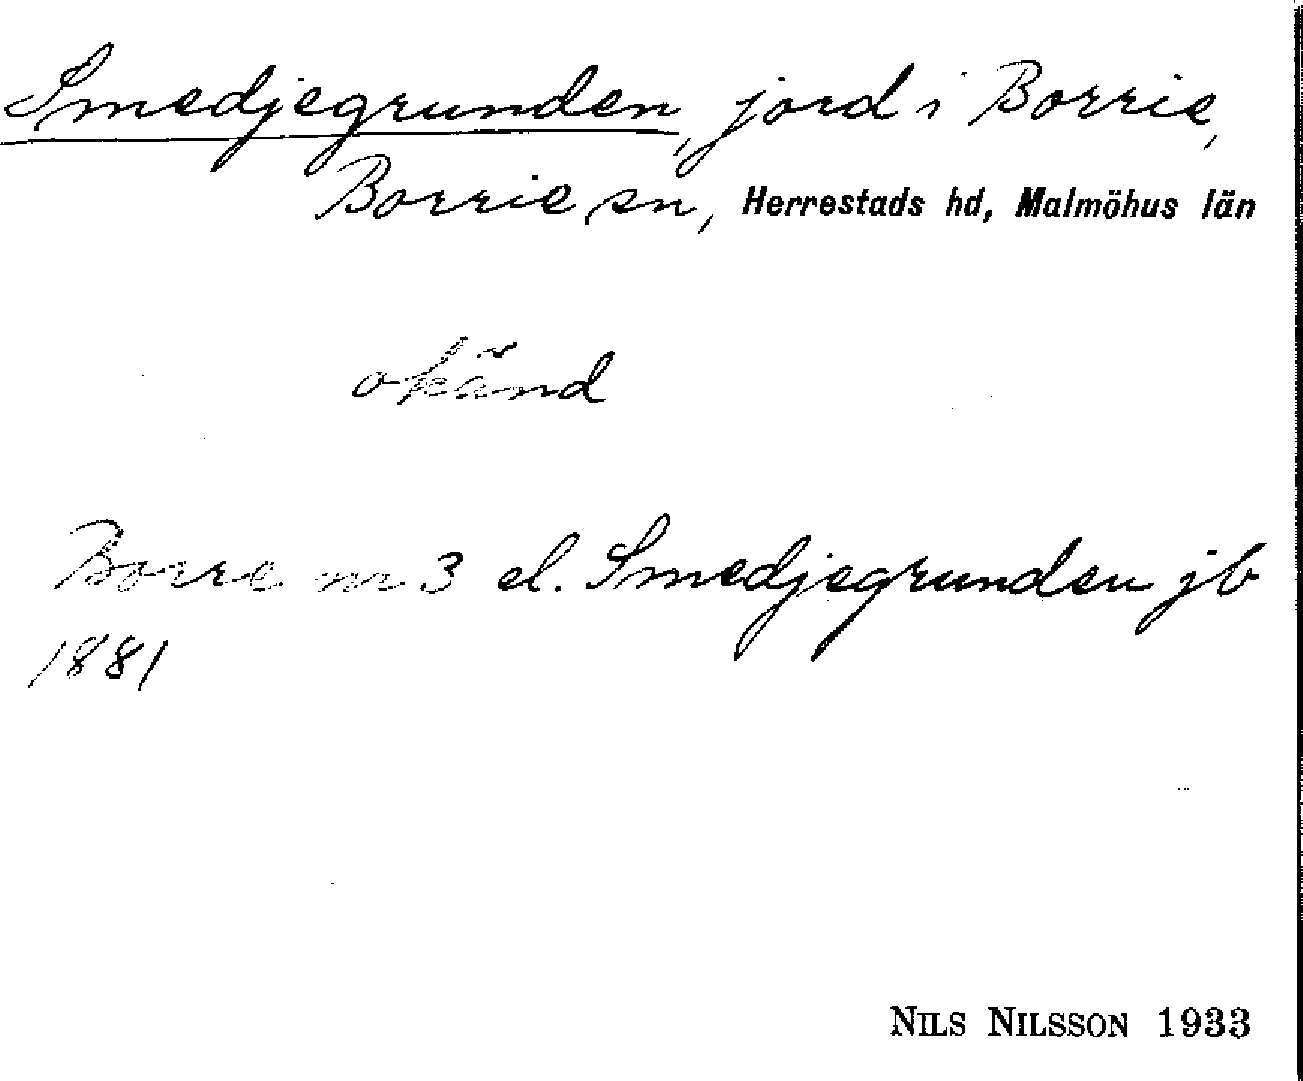 Smedjegrunden, jord i Borrie,
Borrie sn, Herrestads hd, Malmöhus län
okänd
Borre nr 3 el. Smedjegrunden jb
1881
NILS NILSSON 1933